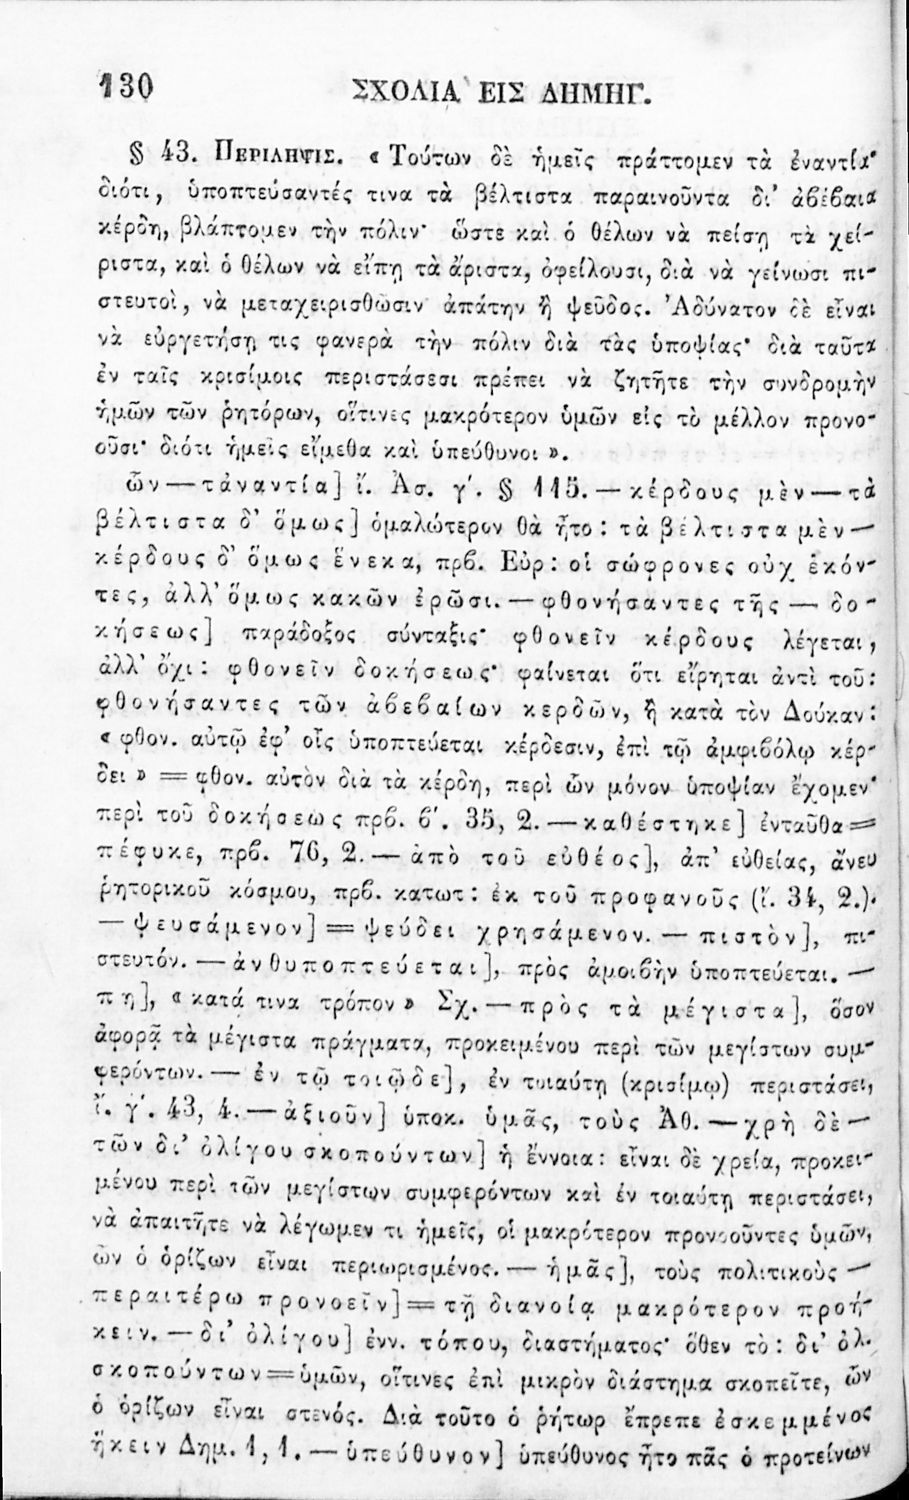 130 ΣΧΟΛΙΑ ΕΙΣ ΔΗΜΗΓ.
§ 43. ΠΕΡΙΛΗΨΙΣ. « Τούτων δὲ ἡμεῖς πράττομεν τὰ ἐναντία·
διότι, ὑποπτεύσαντές τινα τὰ βέλτιστα παραινοῦντα δι' ἀβέβαια
κέρδη, βλάπτομεν τὴν πόλιν· ὥστε καὶ ὁ θέλων νὰ πείσῃ τὰ χεί-
ριστα, καὶ ὁ θέλων νὰ εἴπῃ τὰ ἄριστα, ὀφείλουσι, διὰ νὰ γείνωσι πι-
στευτοὶ, νὰ μεταχειρισθῶσιν ἀπάτην ἢ ψεῦδος. Ἀδύνατον δὲ εἶναι
νὰ εὐργετήσῃ τις φανερὰ τὴν πόλιν διὰ τὰς ὑποψίας· διὰ ταῦτα
ἐν ταῖς κρισίμοις περιστάσεσι πρέπει νὰ ζητῆτε τὴν συνδρομὴν
ἡμῶν τῶν ῥητόρων, οἵτινες μακρότερον ὑμῶν εἰς τὸ μέλλον προνο-
οῦσι· διότι ἡμεῖς εἴμεθα καὶ ὑπεύθυνοι ».
ὧν — τἀναντία] ἴ. Ἀσ. γ'. § 115. — κέρδους μὲν — τὰ
βέλτιστα δ' ὅμως] ὁμαλώτερον θὰ ἦτο : τὰ βέλτιστα μὲν —
κέρδους δ' ὅμως ἕνεκα, πρβ. Εὐρ : οἱ σώφρονες οὐχ ἑκόν-
τες, ἀλλ' ὅμως κακῶν ἐρῶσι. — φθονήσαντες τῆς — δο-
κήσεως] παράδοξος σύνταξις· φθονεῖν κέρδους λέγεται,
ἀλλ' ὄχι : φθονεῖν δοκήσεως· φαίνεται ὅτι εἴρηται ἀντὶ τοῦ :
φθονήσαντες τῶν ἀβεβαίων κερδῶν, ἢ κατὰ τὸν Δούκαν :
« φθον. αὐτῷ ἐφ' οἷς ὑποπτεύεται κέρδεσιν, ἐπὶ τῷ ἀμφιβόλῳ κέρ-
δει » = φθον. αὐτὸν διὰ τὰ κέρδη, περὶ ὧν μόνον ὑποψίαν ἔχομεν·
περὶ τοῦ δοκήσεως πρβ. β'. 35, 2. — καθέστηκε] ἐνταῦθα =
πέφυκε, πρβ. 76, 2. — ἀπὸ τοῦ εὐθέος], ἀπ' εὐθείας, ἄνευ
ῥητορικοῦ κόσμου, πρβ. κατωτ : ἐκ τοῦ προφανοῦς (ἴ. 34, 2.).
— ψευσάμενον] = ψεύδει χρησάμενον. — πιστὸν], πι-
στευτόν. — ἀνθυποπτεύεται], πρὸς ἀμοιβὴν ὑποπτεύεται. —
πη], « κατά τινα τρόπον » Σχ. — πρὸς τὰ μέγιστα], ὅσον
ἀφορᾷ τὰ μέγιστα πράγματα, προκειμένου περὶ τῶν μεγίστων συμ-
φερόντων. — ἐν τῷ τοιῷδε], ἐν τοιαύτῃ (κρισίμῳ) περιστάσει,
ἴ. γ'. 43, 4. — ἀξιοῦν] ὑποκ. ὑμᾶς, τοὺς Ἀθ. — χρὴ δὲ —
τῶν δι' ὀλίγου σκοπούντων] ἡ ἔννοια : εἶναι δὲ χρεία, προκει-
μένου περὶ τῶν μεγίστων συμφερόντων καὶ ἐν τοιαύτῃ περιστάσει,
νὰ ἀπαιτῆτε νὰ λέγωμεν τι ἡμεῖς, οἱ μακρότερον προνοοῦντες ὑμῶν,
ὧν ὁ ὁρίζων εἶναι περιωρισμένος. — ἡμᾶς], τοὺς πολιτικοὺς —
περαιτέρω προνοεῖν] = τῇ διανοίᾳ μακρότερον προή-
κειν. — δι' ὀλίγου] ἐνν. τόπου, διαστήματος· ὅθεν τὸ : δι' ὀλ.
σκοπούντων = ὑμῶν, οἵτινες ἐπὶ μικρὸν διάστημα σκοπεῖτε, ὧν
ὁ ὁρίζων εἶναι στενός. Διὰ τοῦτο ὁ ῥήτωρ ἔπρεπε ἐσκεμμένος
ἥκειν Δημ. 1, 1. — ὑπεύθυνον] ὑπεύθυνος ἦτο πᾶς ὁ προτείνων